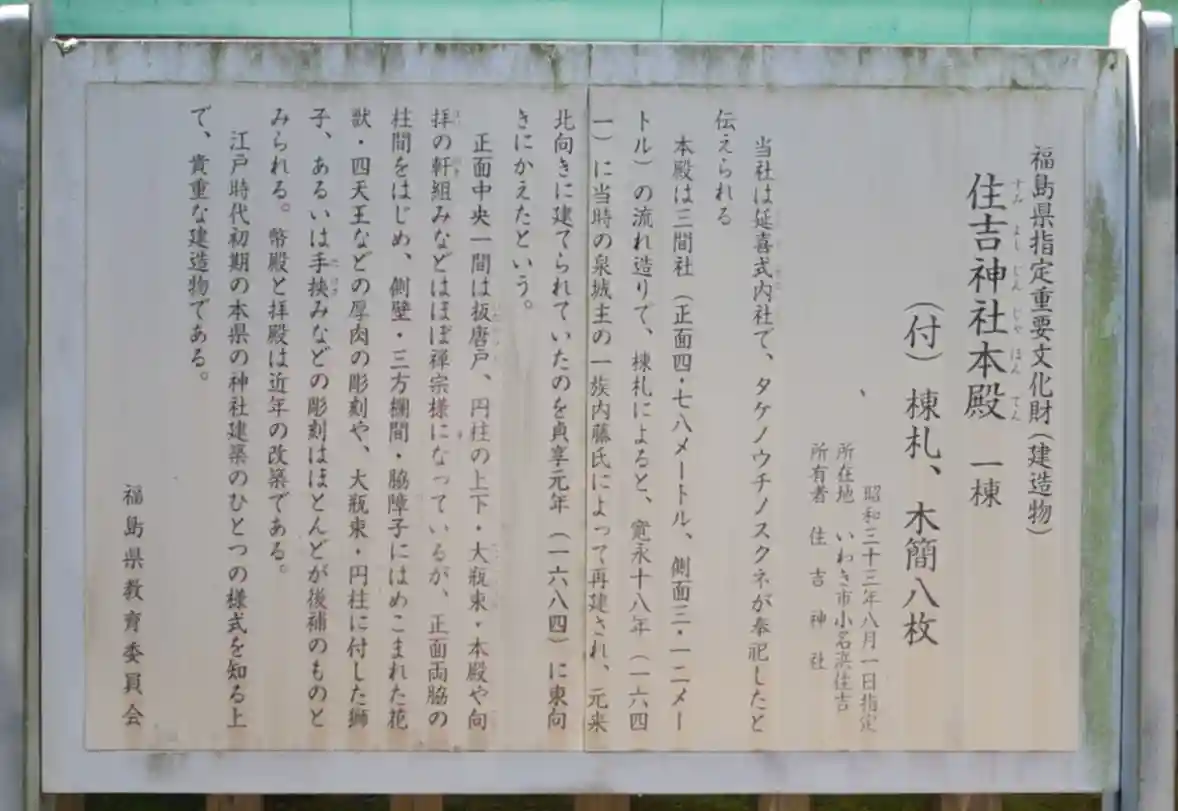 福島県指定重要文化財(建造物)
住吉神社本殿 一棟
(付)棟札、木簡八枚
昭和三十三年八月一日指定
所在地 いわき市小名浜住吉
所有者 住吉神社
当社は延喜式内社で、タケノウチノスクネが奉祀したと
伝えられる
本殿は三間社(正面四・七八メートル、側面三・一二メー
トル)の流れ造りで、棟札によると、寛永十八年(一六四
一)に当時の泉城主の一族内藤氏によって再建され、元来
北向きに建てられていたのを貞享元年(一六八四)に東向
きにかえたという。
正面中央一間は板唐戸、円柱の上下・大瓶束・本殿や向
拝の軒組みなどはほぼ禅宗様になっているが、正面両脇の
柱間をはじめ、側壁・三方欄間・脇障子にはめこまれた花
獣・四天王などの厚肉の彫刻や、大瓶束・円柱に付した獅
子、あるいは手挟みなどの彫刻はほとんどが後補のものと
みられる。幣殿と拝殿は近年の改築である。
江戸時代初期の本県の神社建築のひとつの様式を知る上
で、貴重な建造物である。
福島県教育委員会